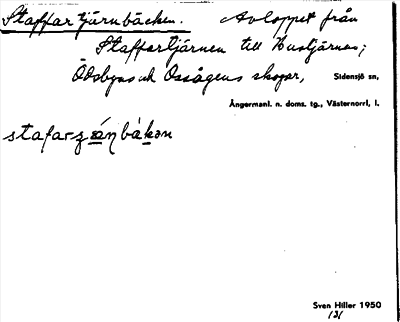 Staffartjärnbäcken. Avloppet från
Staffartjärnen till Hustjärnen;
Ödsbyns och Ossågens skogar, Sidensjö sn,
Ångermanl. n. doms. tg., Västernorrl. l.
stafarzä́ṇbäkən
Sven Hiller 1950
131